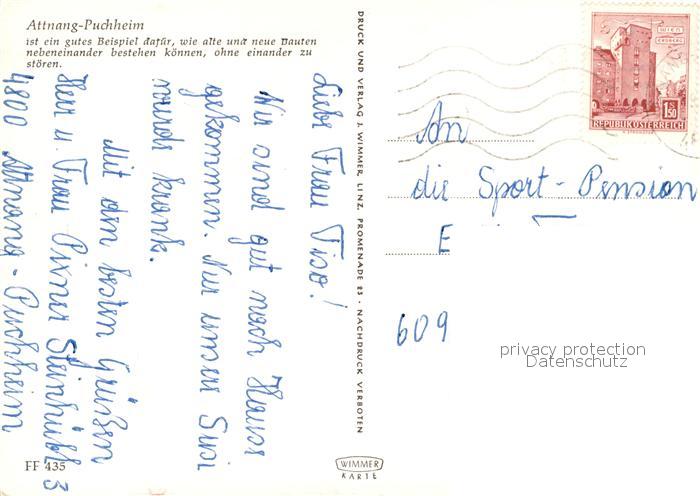 Attnang-Puchheim
ist ein gutes Beispiel dafür, wie alte und neue Bauten
nebeneinander bestehen können, ohne einander zu
stören.
Liebe Frau Tiso!
Wir sind gut nach Hause
gekommen. Nur unsere Susi
wurde krank.
Mit den besten Grüßen
Herr u. Frau Pixner Steinhübl 3
4800 Attnang - Puchheim
FF 435
DRUCK UND VERLAG J. WIMMER, LINZ, PROMENADE 23 · NACHDRUCK VERBOTEN
WIMMER
KARTE
WIEN
ERDBERG
1.50
REPUBLIK ÖSTERREICH
An
die Sport - Pension
E
609
privacy protection
Datenschutz